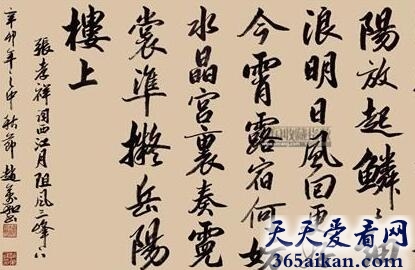 陽放起鱗々
浪明日風回更
今霄露宿何妨
水晶宮裏奏霓
裳準擬岳陽
樓上
張孝祥詞西江月阻風三峰下
辛卯年之中秋節趙
天天爱看网
365aikan.com